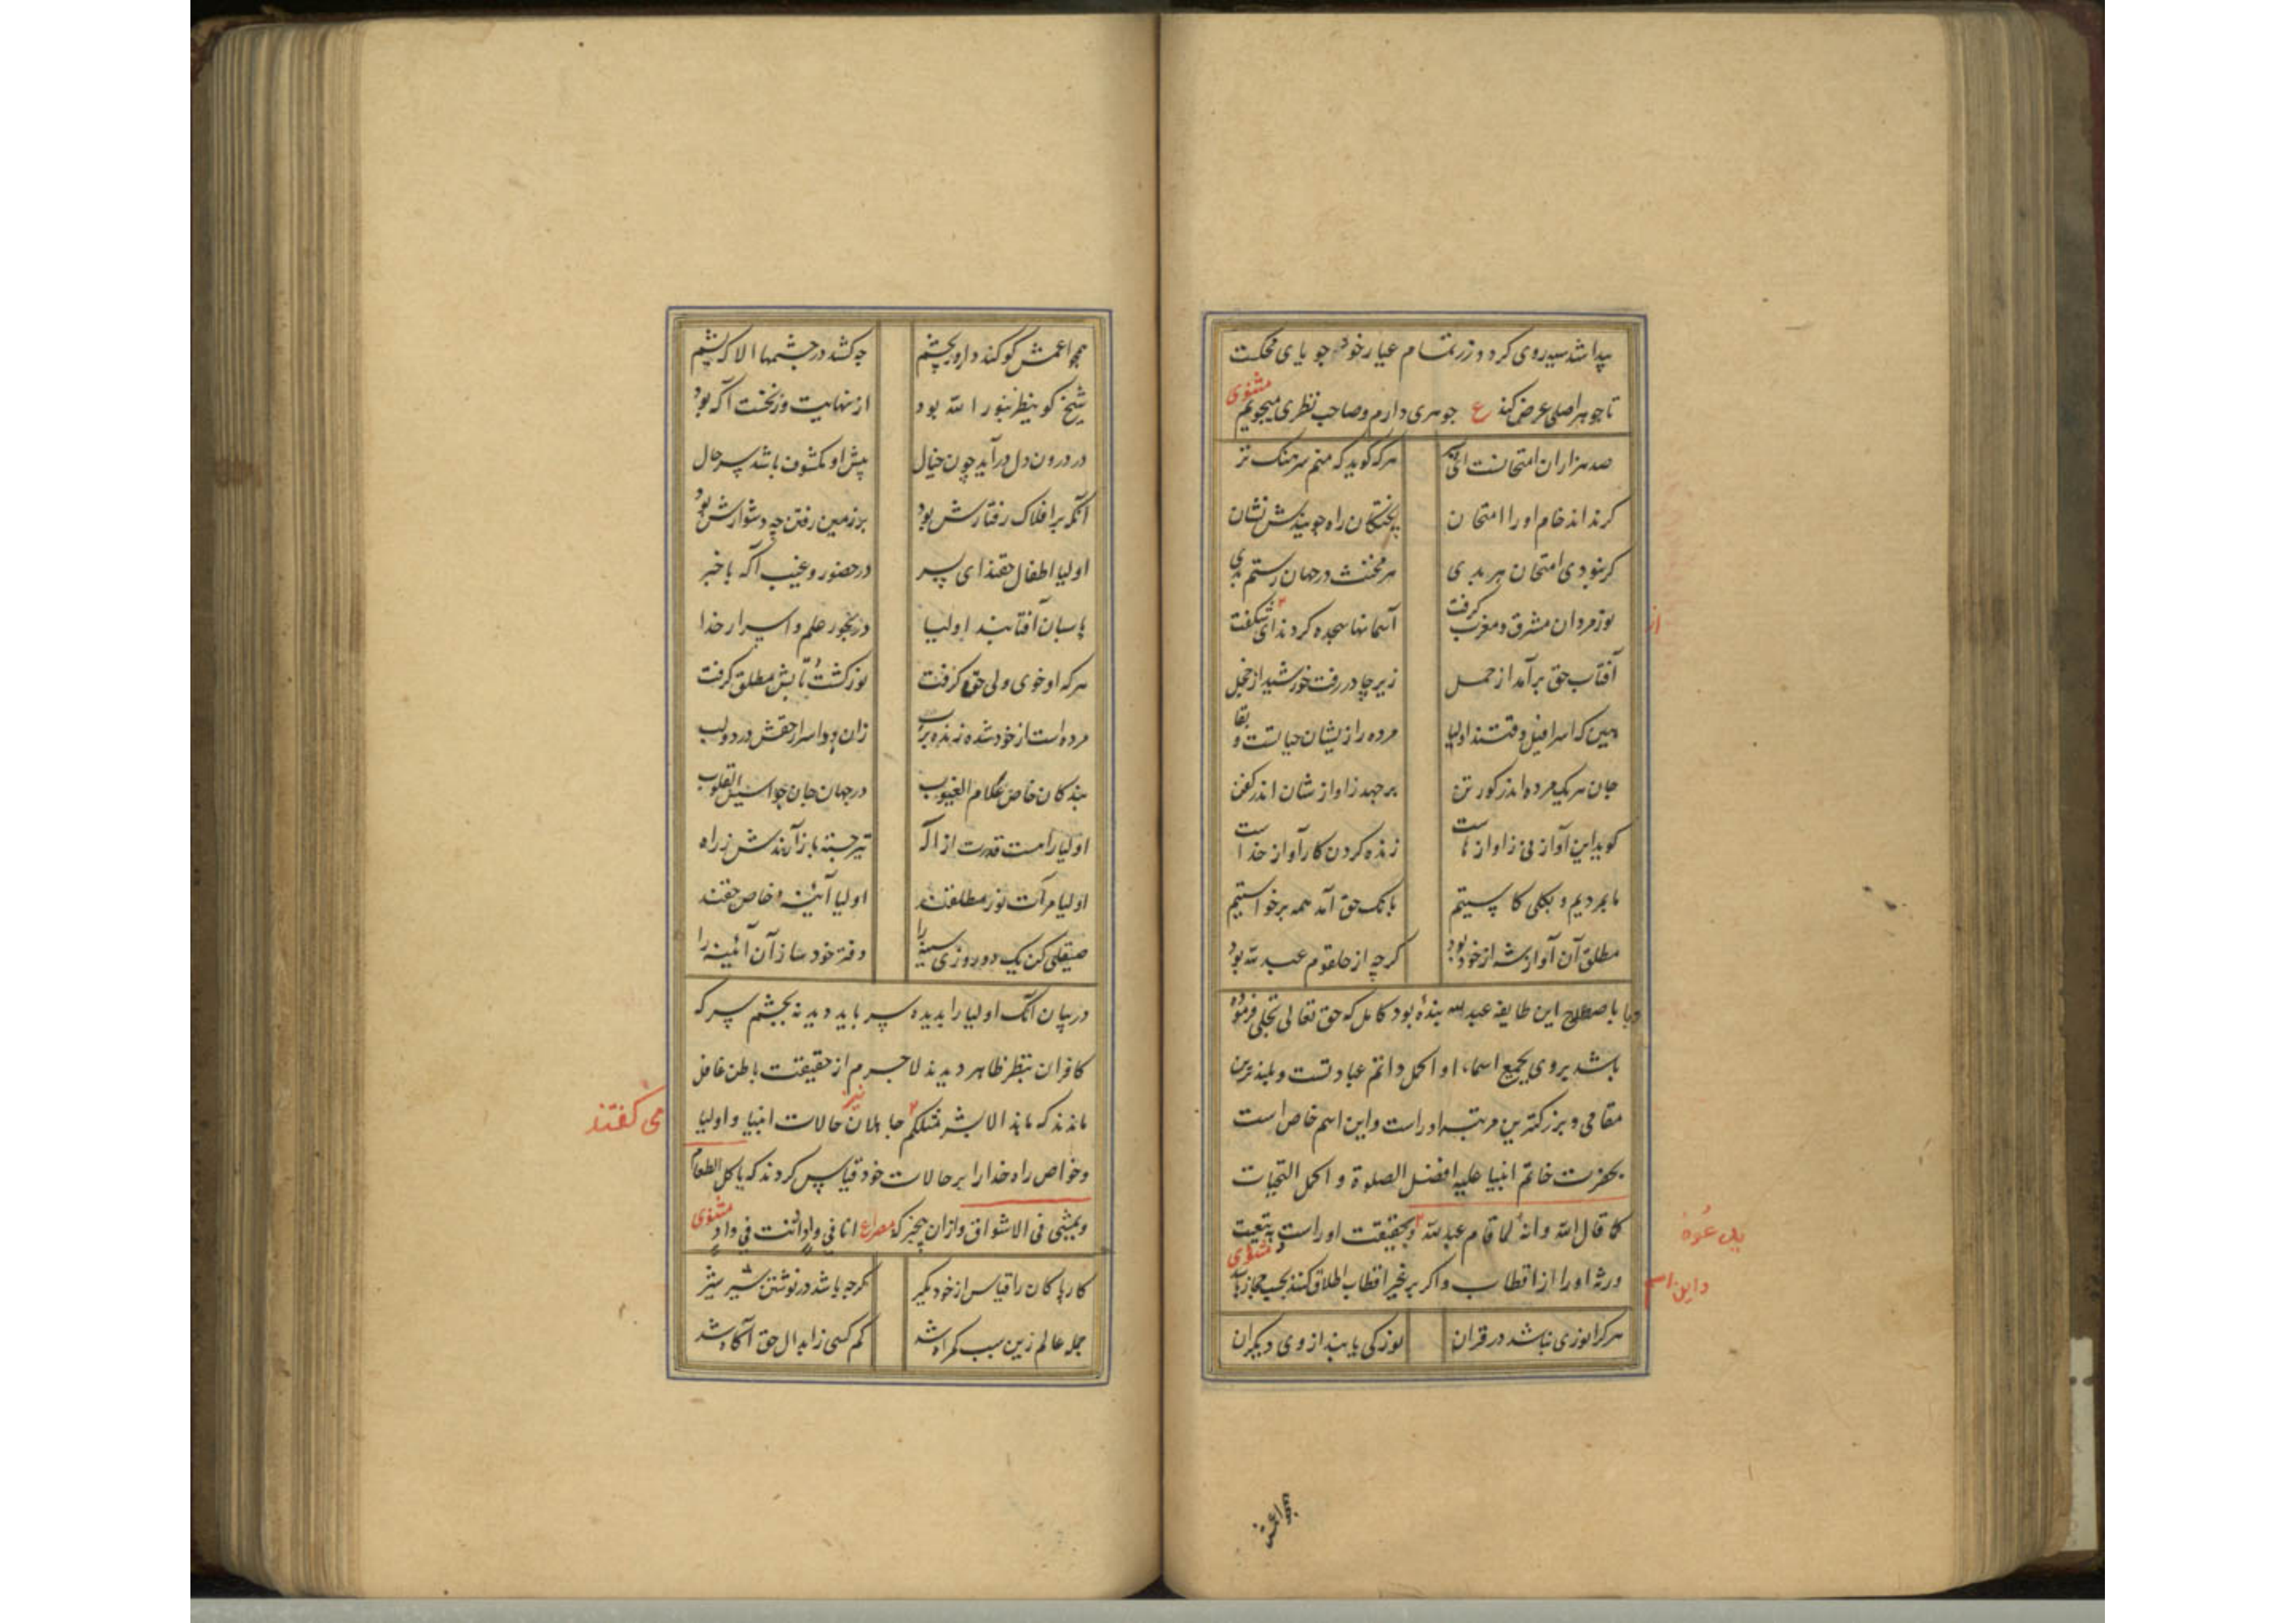 پیدا شد سیه روی کردد زر تمام عیار خود جویای محکست
مثنوی
تا جوهر اصلی عرض کند ع جوهری دارم و صاحب نظری میجویم
صد هزاران امتحانست ای هرکه کوید که منم سرهنک در
کرند اند خام او را امتحان پختکان راه جویندش نشان
کر نبودی امتحان هر بدی هر مخنث در جهان رستم بدی
نور مردان مشرق و مغرب کرفت آسمانها سجده کردند ای شکفت
از
آفتاب حق برآمد از حمل زیر چادر رفت خورشید از خجل
هین که اسرافیل وقتند اولیا مرده را زیشان حیاتست و بقا
جان هر یک مرده اندر کور تن بر جهد ز اواز شان اندر کفن
کوید این آواز نی ز اواز ماست زنده کردن کار آواز خداست
ما بمردیم و بکلی کاستیم بانک حق آمد همه برخواستیم
مطلق آن آواز شه از خود بود کرچه از حلقوم عبد الله بود
باصطلاح این طایفه عبد الله بندهٔ بود کامل که حق تعالی تجلی فرموده
باشد بروی بجمیع اسماء او اکمل و اتم عبادتست و بلندترین
مقامی و بزرکترین مرتبه اوراست و این اسم خاص است
بحضرت خاتم انبیا علیه افضل الصلوة و اکمل التحیات
کما قال الله وانه لما قام عبد الله و بحقیقت اوراست و بتبعیت
مثنوی
ورثه او را از اقطاب و اکر بر غیر اقطاب اطلاق کنند بحسب مجاز باشد
و این اسم
هر کرا نوری نباشد در قران نور کی یابند از وی دیکران
همچو اعمش
همچو اعمش کو کند دارو بچشم چه کشد در چشمها الا که یشم
شیخ کو ینظر بنور الله بود از نهایت وز نخست آکه بود
در درون دل درآید چون خیال پیش او مکشوف باشد سر حال
آنکه بر افلاک رفتارش بود بر زمین رفتن چه دشوارش بود
اولیا اطفال حقند ای پسر در حضور و غیب آکه با خبر
پاسبان آفتابند اولیا در بحور علم و اسرار خدا
هرکه او خوی ولی حق کرفت نور کشت و تابش مطلق کرفت
مرده است از خود شده زنده برب زان بود اسرار حقش در دو لب
بندکان خاص علام الغیوب در جهان جان جواسیس القلوب
اولیا را هست قدرت از اله تیر جسته باز آرندش ز راه
اولیا مرآت نور مطلقند اولیا آئینهٔ خاص حقند
صیقلی کن یک دو روزی سینه را دفتر خود ساز آن آئینه را
در بیان آنک اولیا را بدیده سر باید دید نه بچشم سر که
کافران بنظر ظاهر دیدند لاجرم از حقیقت باطن غافل
ماندند که ما هذا الا بشر مثلکم جاهلان نیز حالات انبیا و اولیا
می کفتند
و خواص راه خدا را بر حالات خود قیاس کردند که یاکل الطعام
مثنوی
ویمشی فی الاسواق و ازان بیخبر که مصراع انا فی واد وانت فی واد
کار پاکان را قیاس از خود مکیر کرچه باشد در نوشتن شیر شیر
جمله عالم زین سبب کمراه شد کم کسی ز ابدال حق آکاه شد